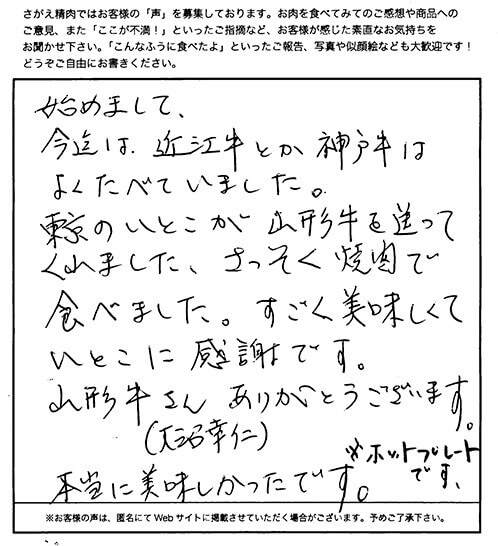 さがえ精肉ではお客様の「声」を募集しております。お肉を食べてみてのご感想や商品への
ご意見、また「ここが不満!」といったご指摘など、お客様が感じた素直なお気持ちを
お聞かせ下さい。「こんなふうに食べたよ」といったご報告、写真や似顔絵なども大歓迎です!
どうぞご自由にお書きください。
始めまして、
今迄は、近江牛とか神戸牛は
よくたべていました。
東京のいとこが山形牛を送って
くれました、さっそく焼肉で
食べました。すごく美味しくて
いとこに感謝です。
山形牛さん ありがとうございます。
幸仁)
※ホットプレート
です、
本当に美味しかったです。
※お客様の声は、匿名にてWebサイトに掲載させていただく場合がございます。予めご了承下さい。